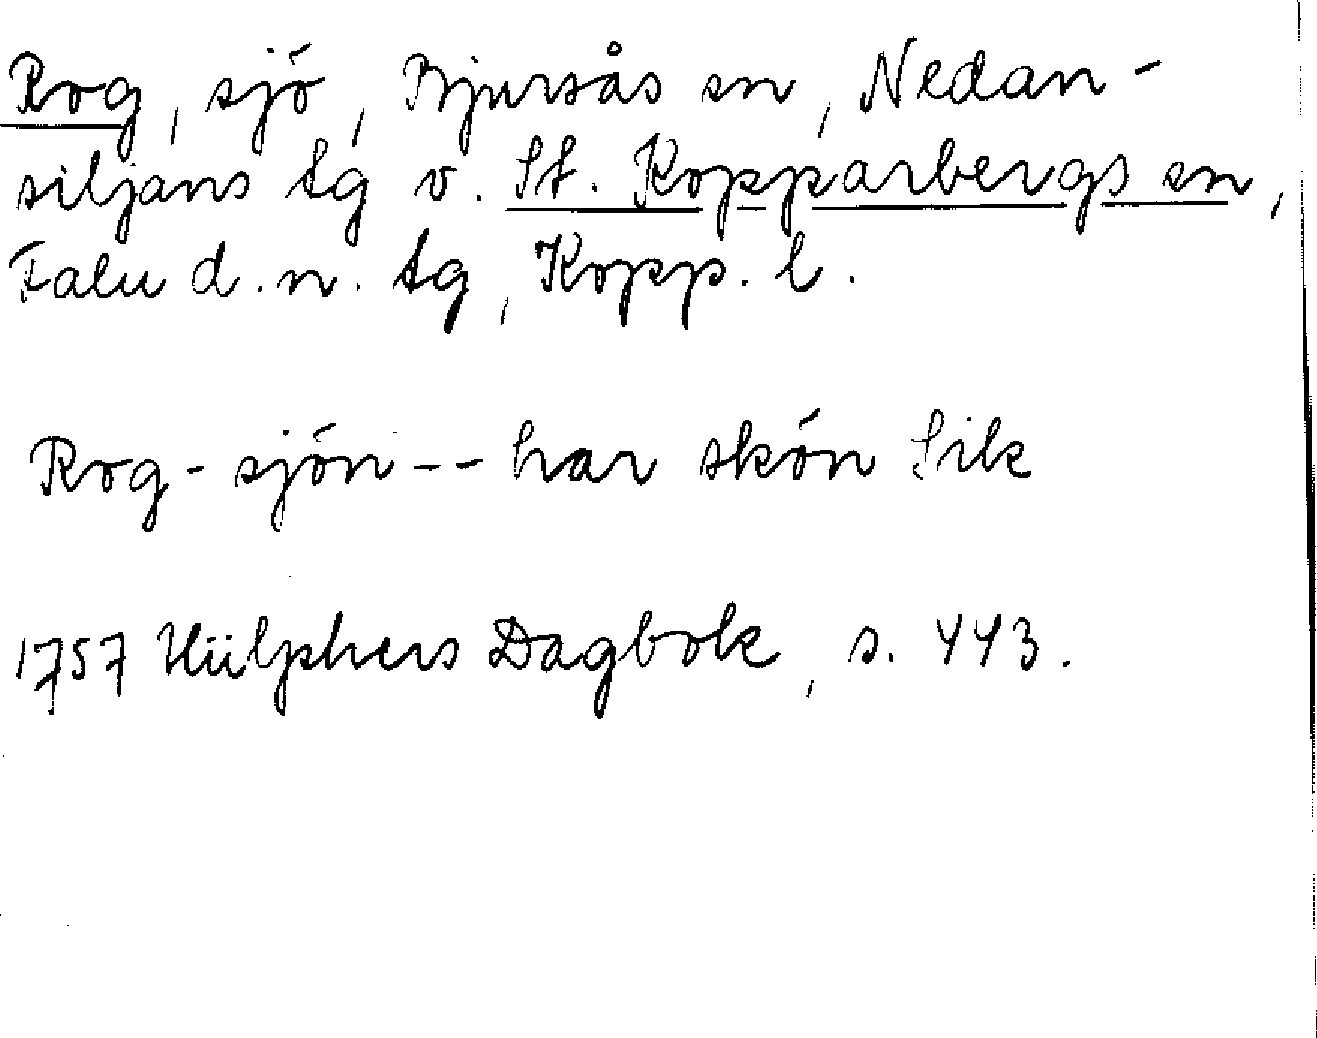 Rog, sjö, Bjursås sn, Nedan-
siljans tg v. St. Kopparbergs sn,
Falu d. n. tg, Kopp. l.
Rog-sjön -- har skön Sik
1757 Hülphers Dagbok, s. 443.